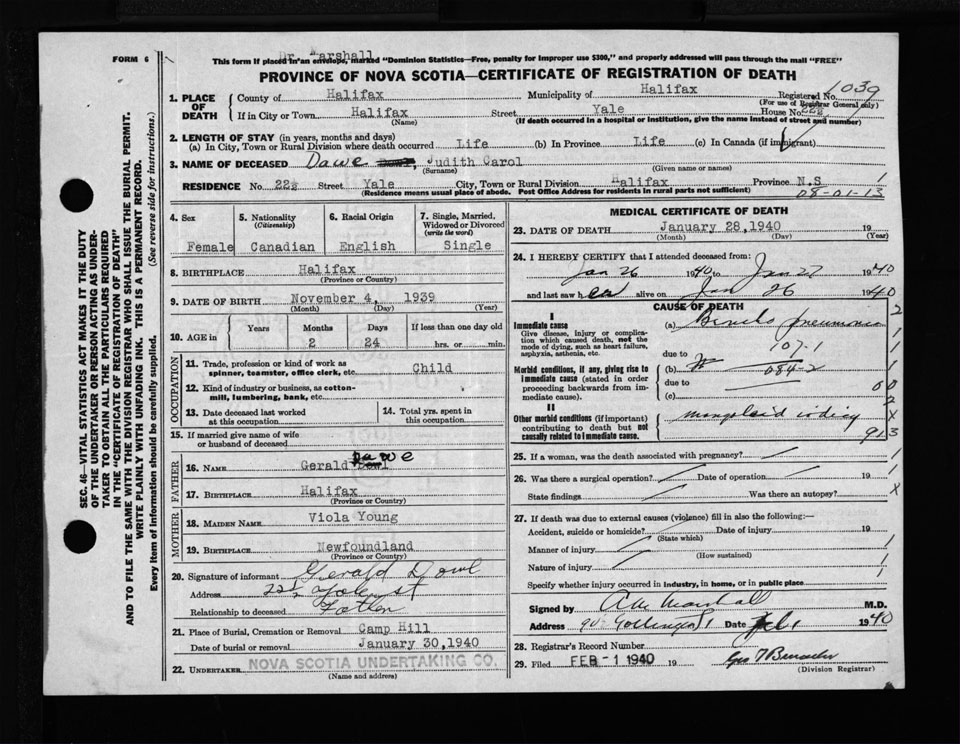 FORM 6
Dr. Marshall
This form if placed in an envelope, marked "Dominion Statistics—Free, penalty for improper use $300," and properly addressed will pass through the mail "FREE"
PROVINCE OF NOVA SCOTIA—CERTIFICATE OF REGISTRATION OF DEATH
1. PLACE OF DEATH
County of Halifax Municipality of Halifax Registered No. 1039
(For use of Registrar General only)
If in City or Town Halifax Street Yale House No.
(Name) (If death occurred in a hospital or institution, give the name instead of street and number)
2. LENGTH OF STAY (in years, months and days)
(a) In City, Town or Rural Division where death occurred Life (b) In Province Life (c) In Canada (if immigrant)
3. NAME OF DECEASED Dawe, Judith Carol
(Surname) (Given name or names)
RESIDENCE No. Street Yale City, Town or Rural Division Halifax Province N.S 1
(Residence means usual place of abode. Post Office Address for residents in rural parts not sufficient) 08-01-13
4. Sex Female
5. Nationality (Citizenship) Canadian
6. Racial Origin English
7. Single, Married, Widowed or Divorced (write the word) Single
8. BIRTHPLACE Halifax
(Province or Country)
9. DATE OF BIRTH November 4, 1939
(Month) (Day) (Year)
10. AGE in Years Months 2 Days 24 If less than one day old hrs. or min.
OCCUPATION
11. Trade, profession or kind of work as spinner, teamster, office clerk, etc. Child
12. Kind of industry or business, as cotton-mill, lumbering, bank, etc.
13. Date deceased last worked at this occupation
14. Total yrs. spent in this occupation
15. If married give name of wife or husband of deceased
FATHER
16. NAME Gerald Dawe
17. BIRTHPLACE Halifax
(Province or Country)
MOTHER
18. MAIDEN NAME Viola Young
19. BIRTHPLACE Newfoundland
(Province or Country)
20. Signature of informant Gerald Dowl
Address
Relationship to deceased Father
21. Place of Burial, Cremation or Removal Camp Hill
Date of burial or removal January 30, 1940
22. UNDERTAKER NOVA SCOTIA UNDERTAKING CO.
(Name and address)
MEDICAL CERTIFICATE OF DEATH
23. DATE OF DEATH January 28, 1940 19
(Month) (Day) (Year)
24. I HEREBY CERTIFY that I attended deceased from:
Jan 26 1940 to Jan 27 1940
and last saw her alive on Jan 26 1940
CAUSE OF DEATH
I
Immediate cause
Give disease, injury or complication which caused death, not the mode of dying, such as heart failure, asphyxia, asthenia, etc.
(a) pneumonia
due to 107-1
Morbid conditions, if any, giving rise to immediate cause (stated in order proceeding backwards from immediate cause).
(b) 084-2
due to
(c)
II
Other morbid conditions (if important) contributing to death but not causally related to immediate cause.
mongoloid idiocy
25. If a woman, was the death associated with pregnancy?
26. Was there a surgical operation? Date of operation 19
State findings Was there an autopsy?
27. If death was due to external causes (violence) fill in also the following:—
Accident, suicide or homicide? Date of injury 19
(State which)
Manner of injury
(How sustained)
Nature of injury
Specify whether injury occurred in industry, in home, or in public place
Signed by Marshall M.D.
Address Date Feb 1 1940
28. Registrar's Record Number
29. Filed FEB -1 1940 19
(Division Registrar)
SEC. 46—VITAL STATISTICS ACT MAKES IT THE DUTY
OF THE UNDERTAKER OR PERSON ACTING AS UNDER-
TAKER TO OBTAIN ALL THE PARTICULARS REQUIRED
IN THE "CERTIFICATE OF REGISTRATION OF DEATH"
AND TO FILE THE SAME WITH THE DIVISION REGISTRAR WHO SHALL ISSUE THE BURIAL PERMIT.
WRITE PLAINLY WITH UNFADING INK. THIS IS A PERMANENT RECORD.
Every item of information should be carefully supplied. (See reverse side for instructions.)